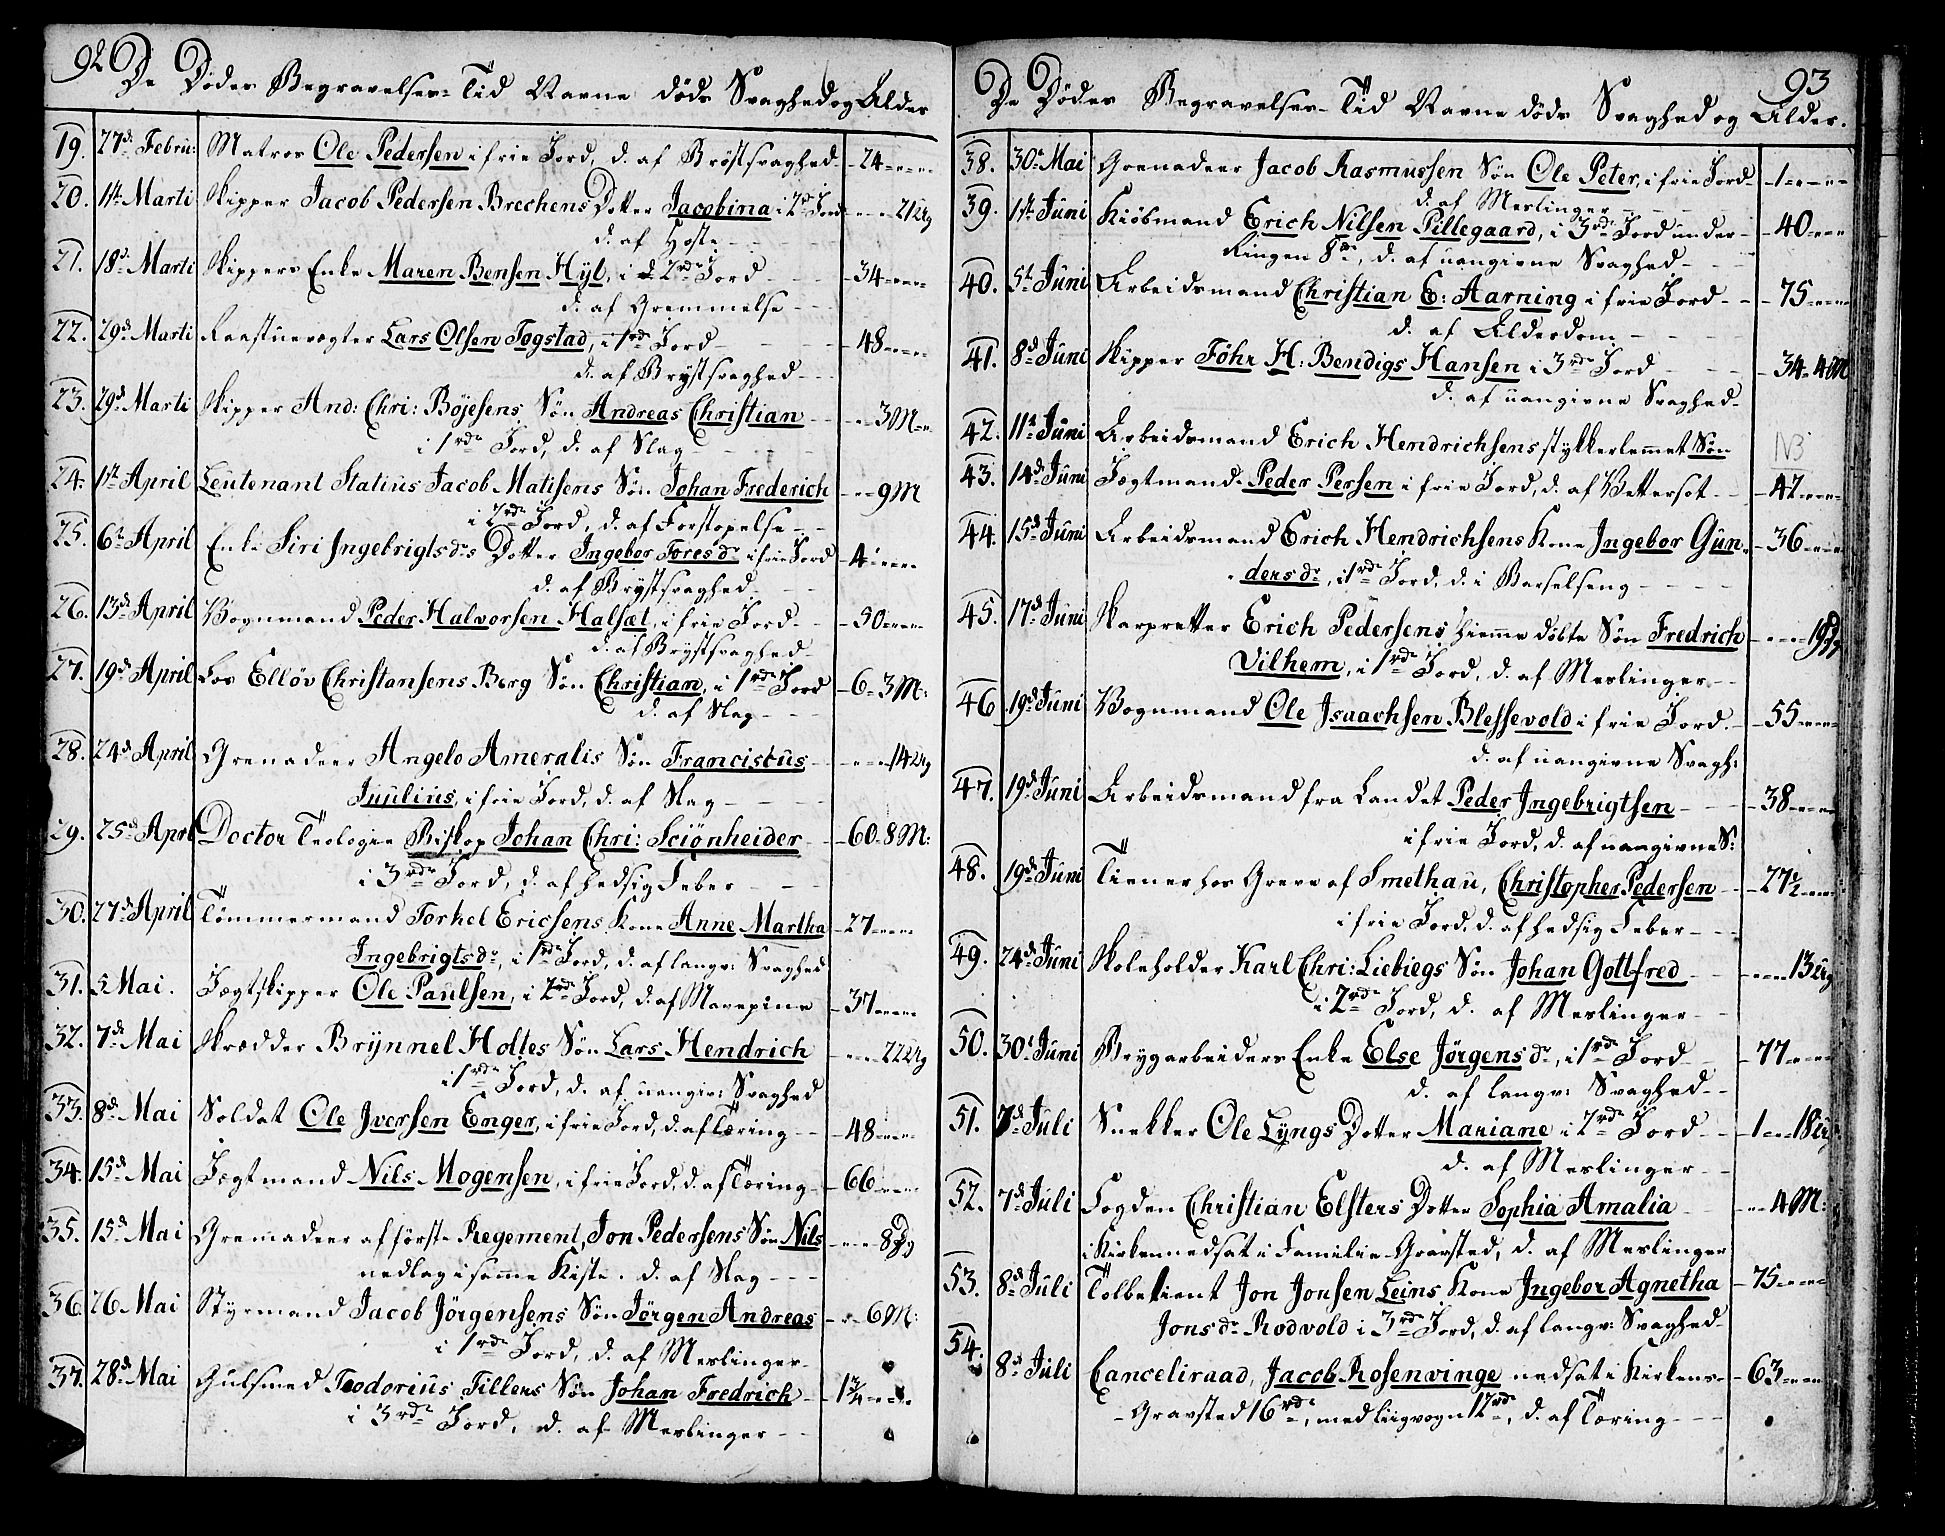 92
De Dödes Begravelses-Tid Navne döds Svaghed og Alder
19. 27d. Febru: Matros Ole Pedersen i frie Jord, d. af Bröstsvaghed 24
20. 1te Marti Skipper Jacob Pedersen Brechens Dotter Jacobina i 2d. Jord 21 Ug
d. af Hoste
21. 18d. Marti Skippers Enke Maren Bensen Hÿl, i 2rd. Jord 34
d. af Gremmelse
22. 29d. Marti Raastuevægter Lars Olsen Togstad, i 1rd. Jord 48
d. af Brÿstsvaghed
23. 29d. Marti Skipper And: Chri: Böjesens Sön Andreas Christian 3 M
i 1rd. Jord, d. af Slag
24. 1te April Leutenant Statius Jacob Matisens Sön Johan Frederich 9 M
i 2rd. Jord, d. af Forstopelse
25. 6te April Enke Siri Ingebrigtsdr.s Dotter Ingebor Toresdr. i frie Jord 4
d. af Brÿstsvaghed
26. 13d. April Vognmand Peder Halvorsen Halsæt, i frie Jord 50
d. af Brÿstsvaghed
27. 19d. April Los Ellöv Christansens Berg Sön Christian, i 1rd. Jord 6 - 3 M:
d. af Slag
28. 24d. April Grenadeer Angelo Ameralis Sön Franciscus 14 Ug
Juulius, i frie Jord, d. af Slag
29. 25d. April Doctor Teologie Biskop Johan Chri: Sciönheider 60 - 8 M:
i 3rd. Jord, d. af hedsig Feber
30. 27d. April Tömmermand Torkel Ericsens Kone Anne Martha 27
Ingebrigtsdr., i 1rd. Jord, d. af langv: Svaghed
31. 5 Mai. Jægtskipper Ole Paulsen, i 2rd. Jord, d. af Mavepine 37
32. 7d. Mai Skrædder Brÿnnel Holtes Sön Lars Hendrich 22 Ug
i 1rd. Jord, d. af uangiv: Svaghed
33. 8d. Mai Soldat Ole Iversen Enger, i frie Jord, d. af Tæring 48
34. 15d. Mai Jægtmand Nils Mogensen, i frie Jord, d. af Tæring 66
35. 15d. Mai Grenadeer af förste Regement, Jon Pedersens Sön Nils 8 Dg
nedlag i samme Kiste. d. af Slag
36. 26 Mai Styrmand Jacob Jörgensens Sön Jörgen Andreas 6 M:
i 1rd. Jord, d. af Meslinger
37. 28d. Mai Gulsmed Teodorius Tillers Sön Johan Fredrich 1 3/4
i 3rd. Jord, d. af Meslinger
93
De Dödes Begravelses-Tid Navne döds Svaghed og Alder.
38. 30te Mai Grenadeer Jacob Rasmussen Sön Ole Peter, i frie Jord 1
d. af Meslinger
39. 1te Juni Kiöbmand Erich Nilsen Pillegaard, i 3rd. Jord under 40
Ringen 8te, d. af uangivne Svaghed
40. 5te Juni Arbeidsmand Christian E: Aarning i frie Jord 75
d. af Alderdom
41. 8d. Juni Skipper Föhr H: Bendigs Hansen i 3rd. Jord 34 - 4 M
d. af uangivne Svaghed
42. 11te Juni Arbeidsmand Erich Hendrichsens stykkerlemmet Sön NB
43. 14d. Juni Jægtmand Peder Persen i frie Jord, d. af Vattersot 47
44. 15d. Juni Arbeidsmand Erich Hendrichsens Kone Ingebor Gun- 36
dersdr., i 1rd. Jord, d. i Barselseng
45. 17d. Juni Skarpretter Erich Pedersens hiemme döbte Sön Fredrich 19 Dg
Vilhem, i 1rd. Jord, d. af Meslinger
46. 19d. Juni Vognmand Ole Isaachsen Blessevold i frie Jord 55
d. af uangivne Svagh:
47. 19d. Juni Arbeidsmand fra Landet Peder Ingebrigtsen 38
i frie Jord, d. af uangivne S:
48. 19d. Juni Tiener hos Greve af Smethau, Christopher Pedersen 27 1/2
i frie Jord, d. af hedsig Feber
49. 24d. Juni Skoleholder Karl Chri: Liebiegs Sön Johan Gottfred 13 Ug
i 2rd. Jord, d. af Meslinger
50. 30te Juni Brygarbeiders Enke Else Jörgensdr., i 1rd. Jord 77
d. af langv: Svaghed
51. 7d. Juli Snekker Ole Lÿngs Dotter Mariane i 2rd. Jord 1 - 18 Ug
d. af Meslinger
52. 7d. Juli Fogden Christian Elsters Dotter Sophia Amalia 4 M:
i Kirken nedsat i Familie-Gravsted, d. af Meslinger
53. 8d. Juli Tolbetient Jon Jonsen Leins Kone Ingebor Agnetha 75
Jonsdr. Rodvold i 3rd. Jord, d. af langv: Svaghed
54. 8d. Juli Canceliraad, Jacob Rosenvinge nedsat i Kirkens- 63
-Gravsted 16rd., med liigvogn 12rd., d. af Tæring